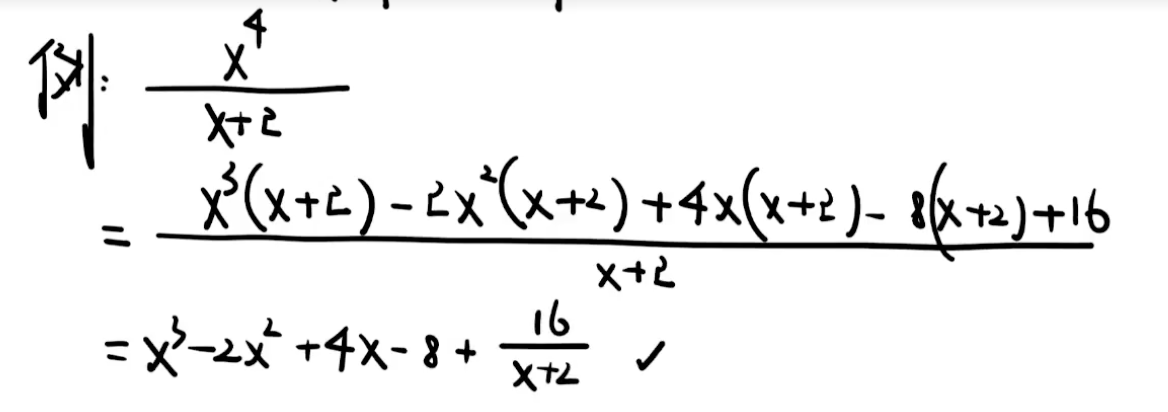 例: x^4/(x+2)
= (x^3(x+2)-2x^2(x+2)+4x(x+2)-8(x+2)+16)/(x+2)
= x^3-2x^2+4x-8+16/(x+2) ✓